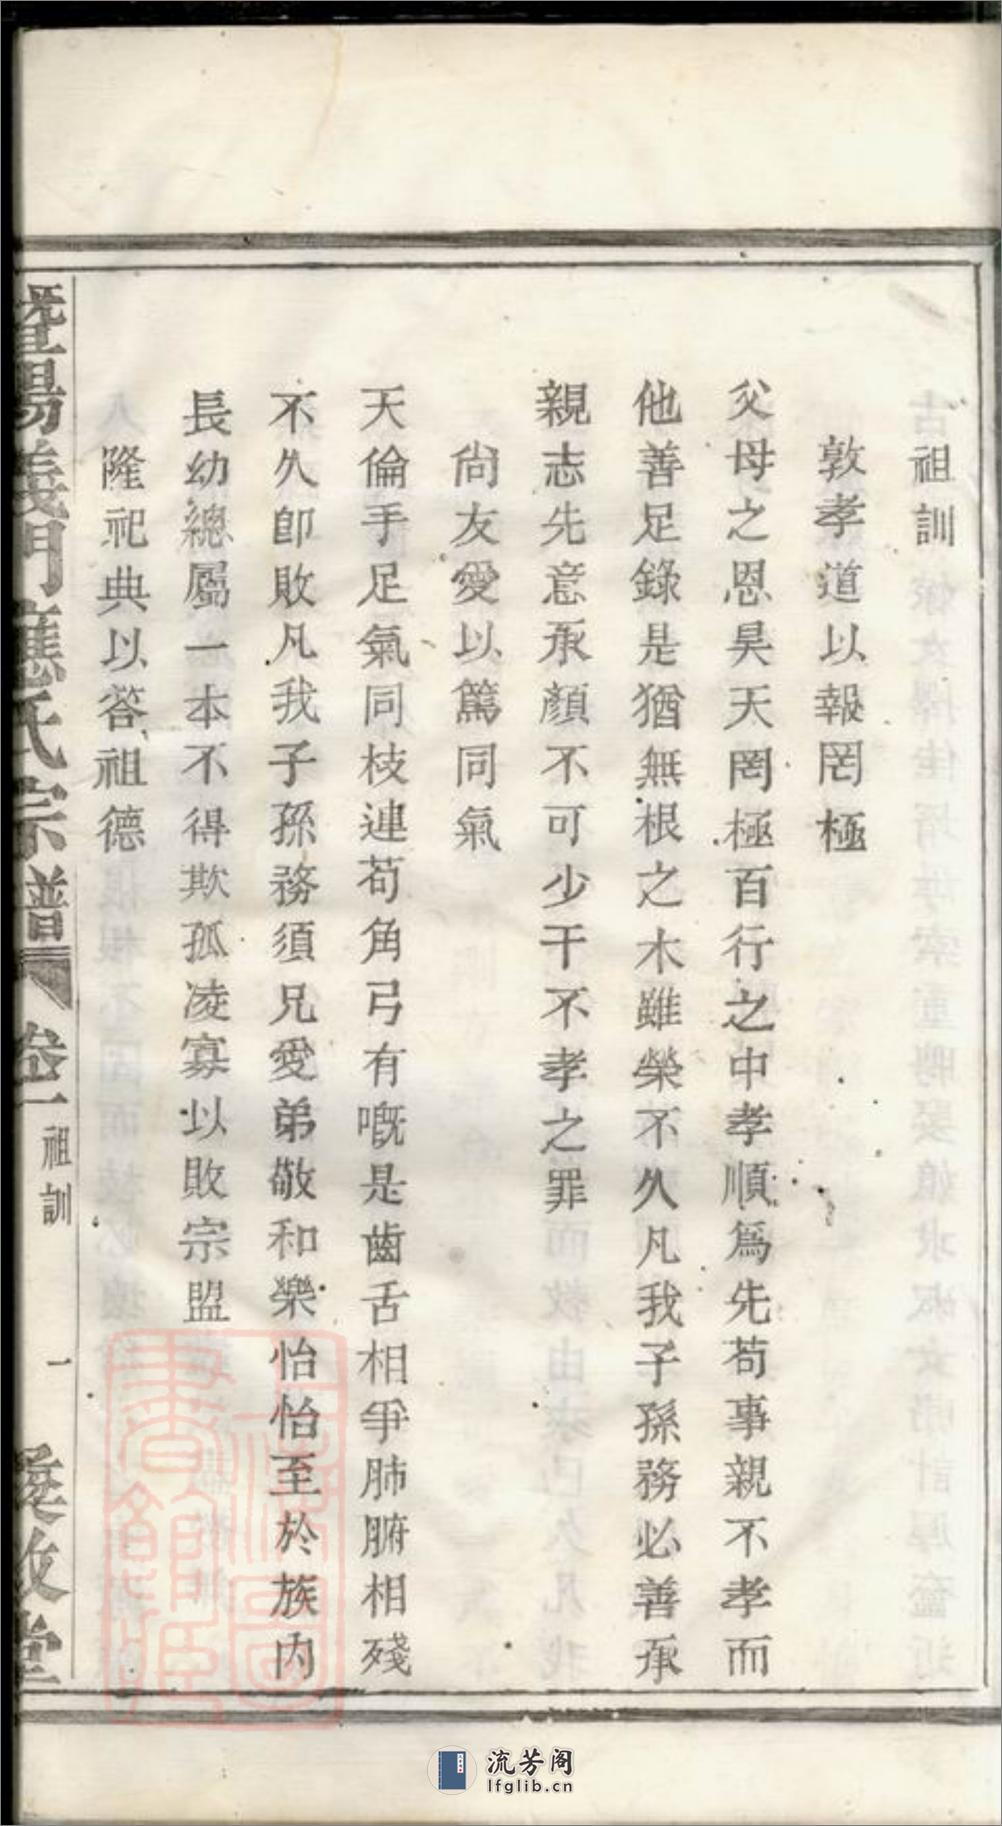 祖訓
敦孝道以報罔極
父母之恩昊天罔極百行之中孝順爲先苟事親不孝而
他善足錄是猶無根之木雖榮不久凡我子孫務必善承
親志先意承顏不可少干不孝之罪
尙友愛以篤同氣
天倫手足氣同枝連苟角弓有嘅是齒舌相爭肺腑相殘
不久卽敗凡我子孫務須兄愛弟敬和樂怡怡至於族內
長幼總屬一本不得欺孤凌寡以敗宗盟
隆祀典以答祖德
暨陽義門應氏宗譜
卷一
祖訓
一
愛敬堂
上海圖書館藏
流芳阁
lfglib.cn